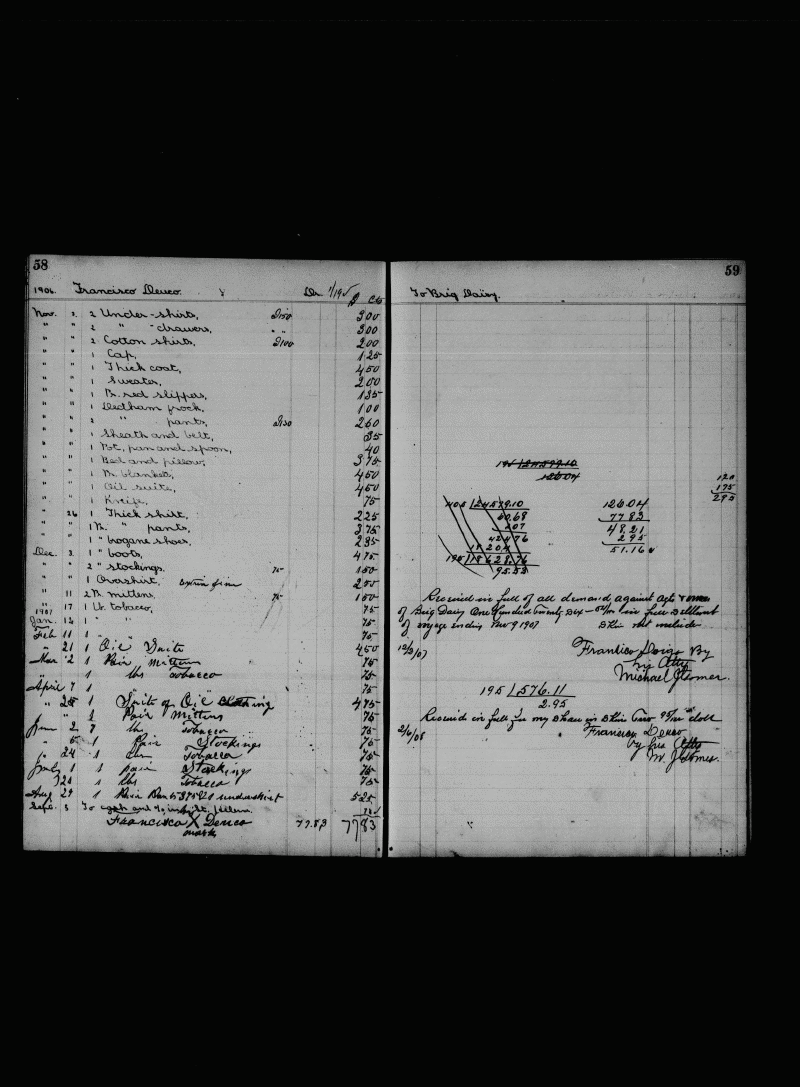 58
1906. Francisco Deuco. Dr 1/195
$ Cts
Nov. 2. 2 Under-shirts, @150 300
" " 2 " -drawers, " " 300
" " 2 Cotton shirts, @100 200
" " 1 Cap, 125
" " 1 Thick coat, 450
" " 1 Sweater, 200
" " 1 Pr. red slippers, 135
" " 1 Dedham frock, 100
" " 2 " pants, @130 260
" " 1 Sheath and belt, 35
" " 1 Pot, pan and spoon, 40
" " 1 Bed and pillow, 375
" " 1 Pr. blankets, 450
" " 1 Oil suite, 450
" " 1 Knife, 75
" 26 1 Thick shirt, 225
" " 1 Pr. " pants, 375
" " 1 " brogane shoes, 235
Dec. 3. 1 " boots, 475
" " 2 " stockings. 75 150
" " 1 Overshirt, extra fine 200
" 11 2 Pr. mittens, 75 150
" 17 1 lb. tobacco, 75
1907
Jan. 14 1 " " 75
Feb 11 1 " " 75
" 21 1 Oil Suite 450
Mar 2 1 Pair Mittens 75
" 1 lbs Tobacco 75
April 7 1 75
" 25 1 Suite of Oil Clothing 475
" " 1 Pair Mittens 75
June 2 lb Tobacco 75
" 5 1 Pair Stockings 75
" 24 1 Tobacco 75
July 1 1 pair Stockings 75
1 lbs Tobacco 75
Aug 29 1 Pair Pants 375 & 1 undershirt 525
Sept. 3 To cash and
Francisco X Deuco 77.83 7783
mark
59
To Brig Daisy.
195 124579.10
12604
120
175
295
405 124579.10
60.68
607
42476
18204
195 18628.76
95.53
12604
7783
4821
295
51.16
Received in full of all demand against Agts & owners
of Brig Daisy One Hundred Twenty Six — 04/100 in full settlement
of voyage ending Nov 9 1907 Skin not include
12/3/07 By
his Atty
Michael J Gomes.
195 576.11
2.95
Received in full for my Share in Skin Two 95/100 doll
2/6/08 Francisco Deuco
by his Atty
M. J Gomes.